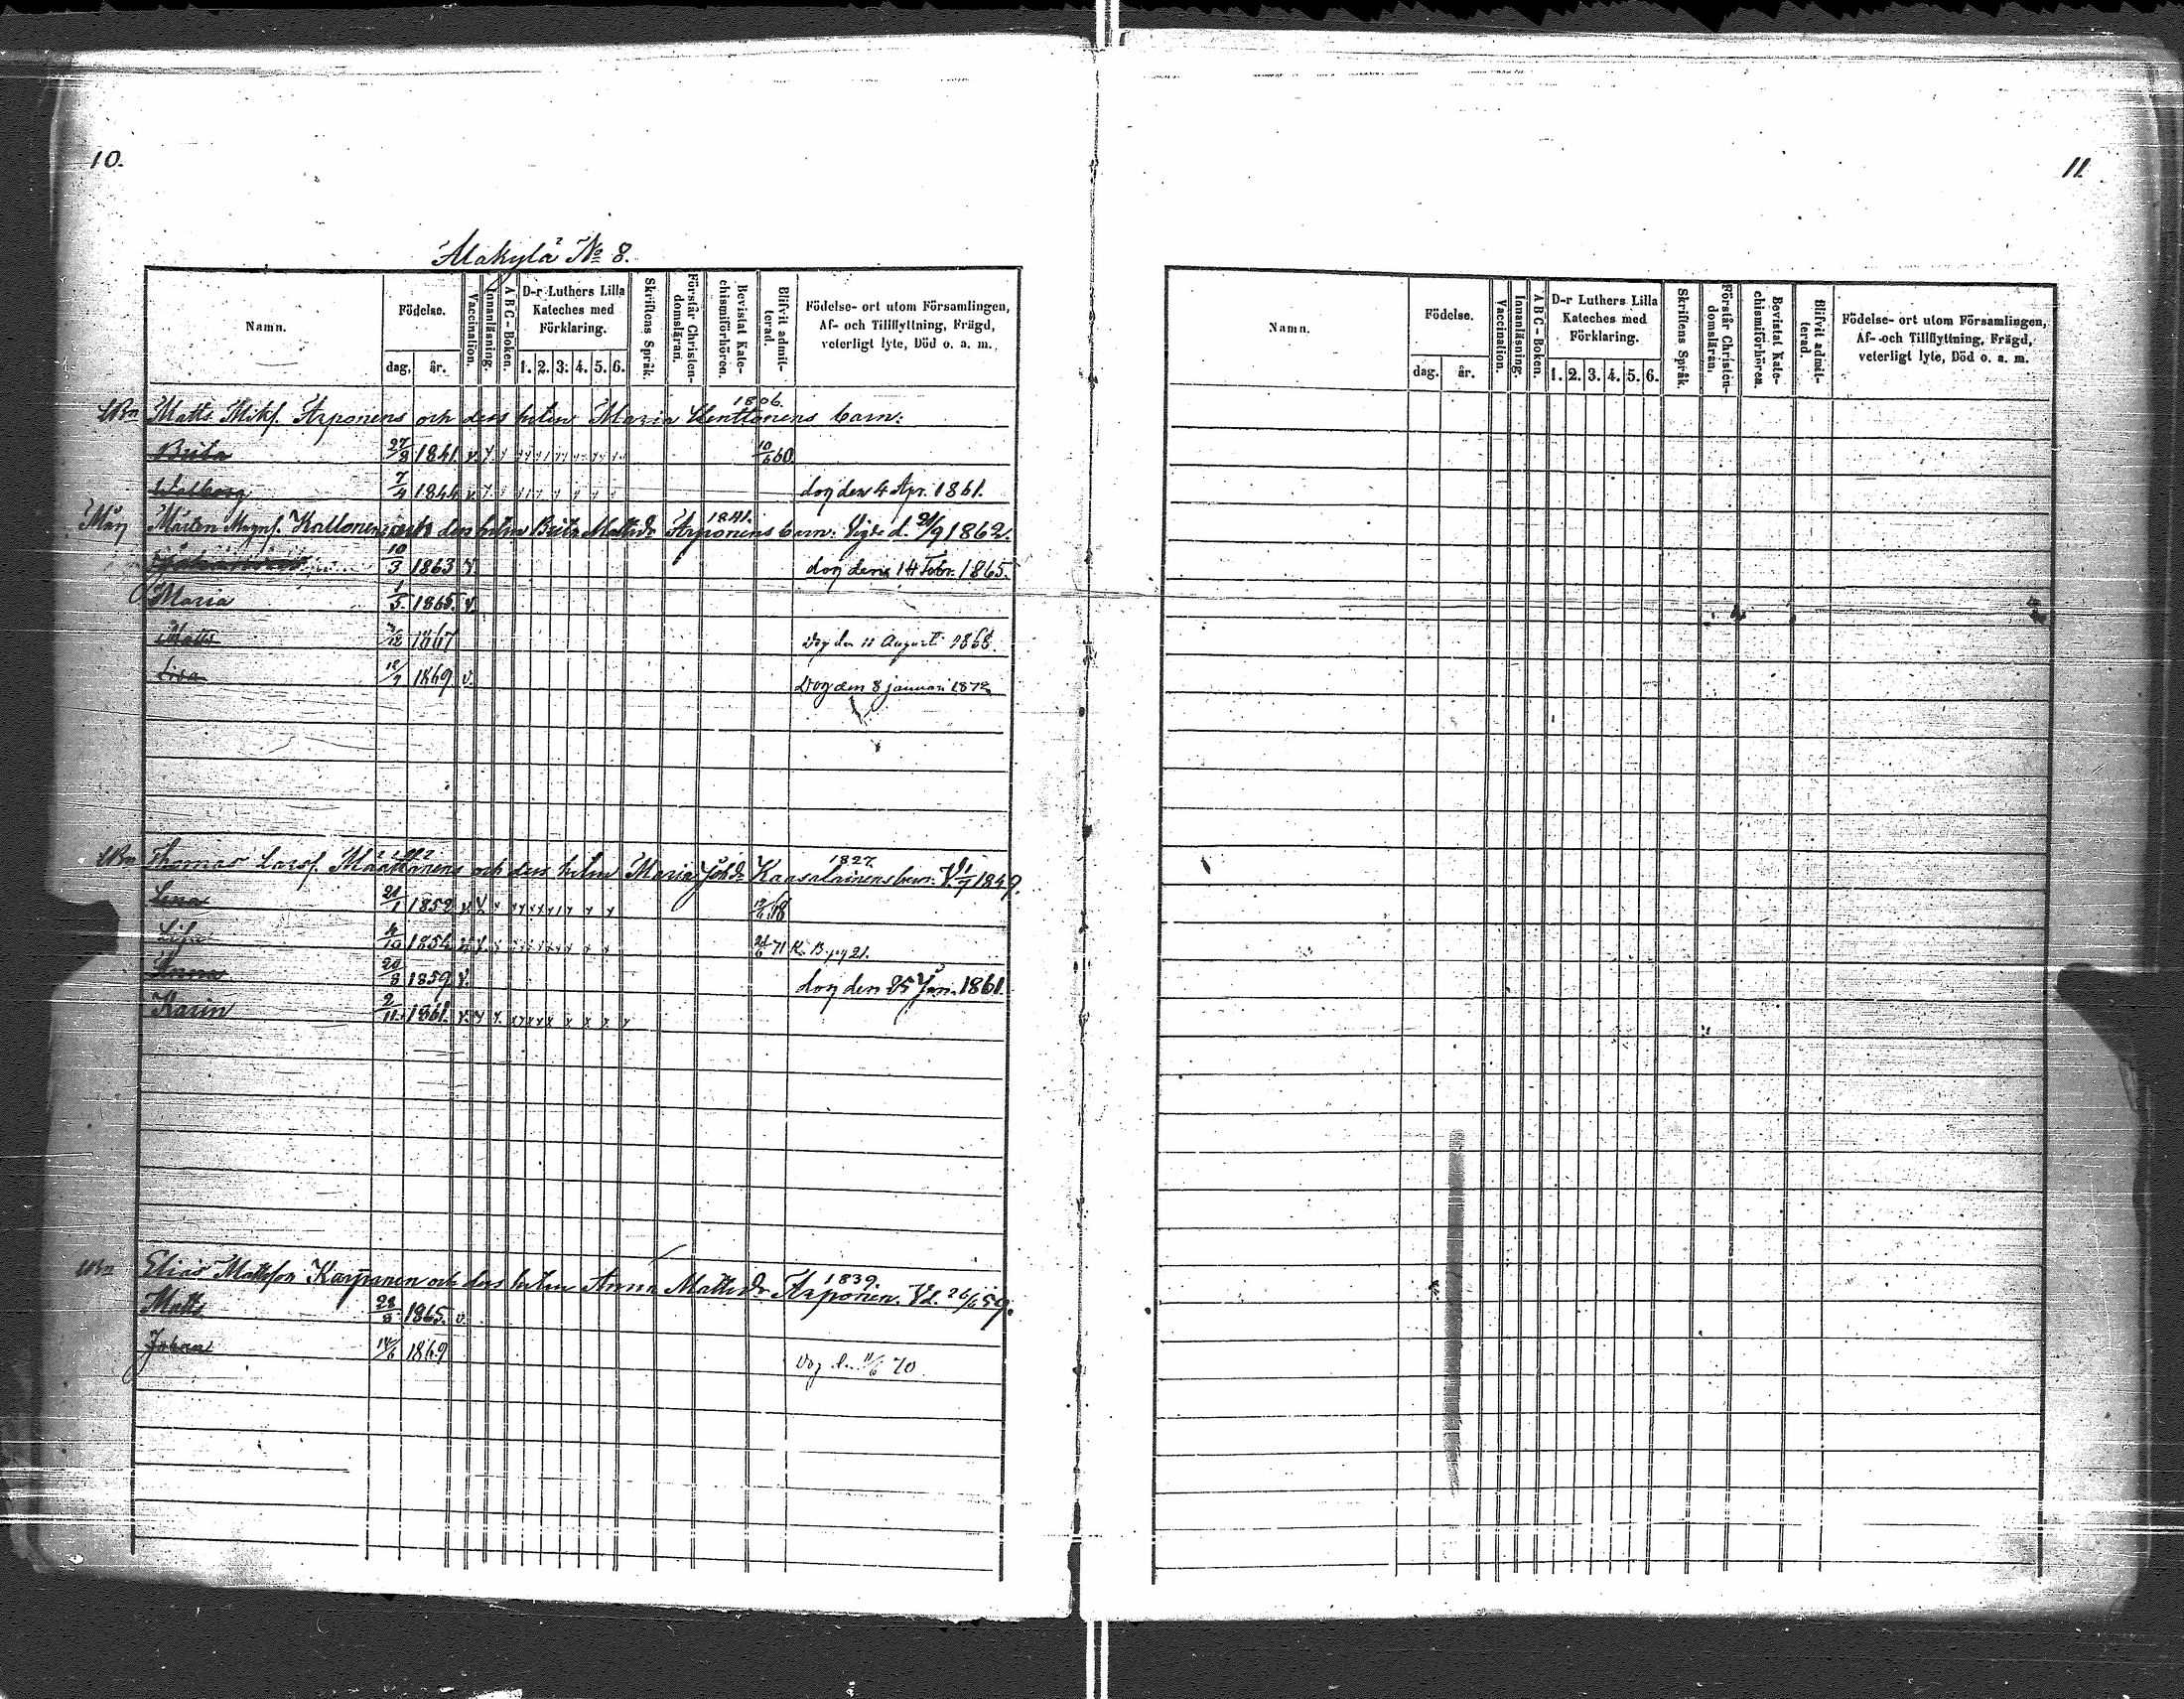 10.
11
Alakylä No 8.
Namn.
Födelse.
dag.
år.
Vaccination.
Innanläsning.
A B C-Boken.
D-r Luthers Lilla
Kateches med
Förklaring.
1. 2. 3. 4. 5. 6.
Skriftens Språk.
Förstår Christen-
domsläran.
Bevistat Kate-
chismiförhören.
Blifvit admit-
terad.
Födelse- ort utom Församlingen,
Af- och Tillflyttning, Frägd,
veterligt lyte, Död o. a. m.
1806.
Matts Mikf. Arponens och dess hustru Maria Henttonens barn:
Brita 27/9 1841. 10/6 60
Walborg 7/4 1844 dog den 4 Apr. 1861.
1841.
Måg Mårten Magnf. Kallonens och dess hustru Brita Mattsdr Arponens barn: Vigde d. 21/9 1862.
10/3 1863 dog den 14 Febr. 1865.
Maria 1/5 1865.
Matts 1867 Dog den 11 Augusti 1868.
Lisa 12/7 1869 v. Dog den 8 januari 1872
1827.
Thomas Larsf. Määttänens och dess hustru Maria Johdr Kaasalainens barn. V. 1/7 1849.
Lena 21/1 1852
Lisa 4/10 1854 21/6 71 K. B. pag 21.
Anna 20/8 1859 dog den 25 Jan. 1861.
Karin 2/11 1861.
1839.
Elias Mattsson Karppanen och dess hustru Anna Mattsdr Arponen. Vd. 26/6 59.
Matts 28/8 1865. v.
Johan 14/6 1869 Dog d. 11/6 70.
Namn.
Födelse.
dag.
år.
Vaccination.
Innanläsning.
A B C-Boken.
D-r Luthers Lilla
Kateches med
Förklaring.
1. 2. 3. 4. 5. 6.
Skriftens Språk.
Förstår Christen-
domsläran.
Bevistat Kate-
chismiförhören.
Blifvit admit-
terad.
Födelse- ort utom Församlingen,
Af- och Tillflyttning, Frägd,
veterligt lyte, Död o. a. m.